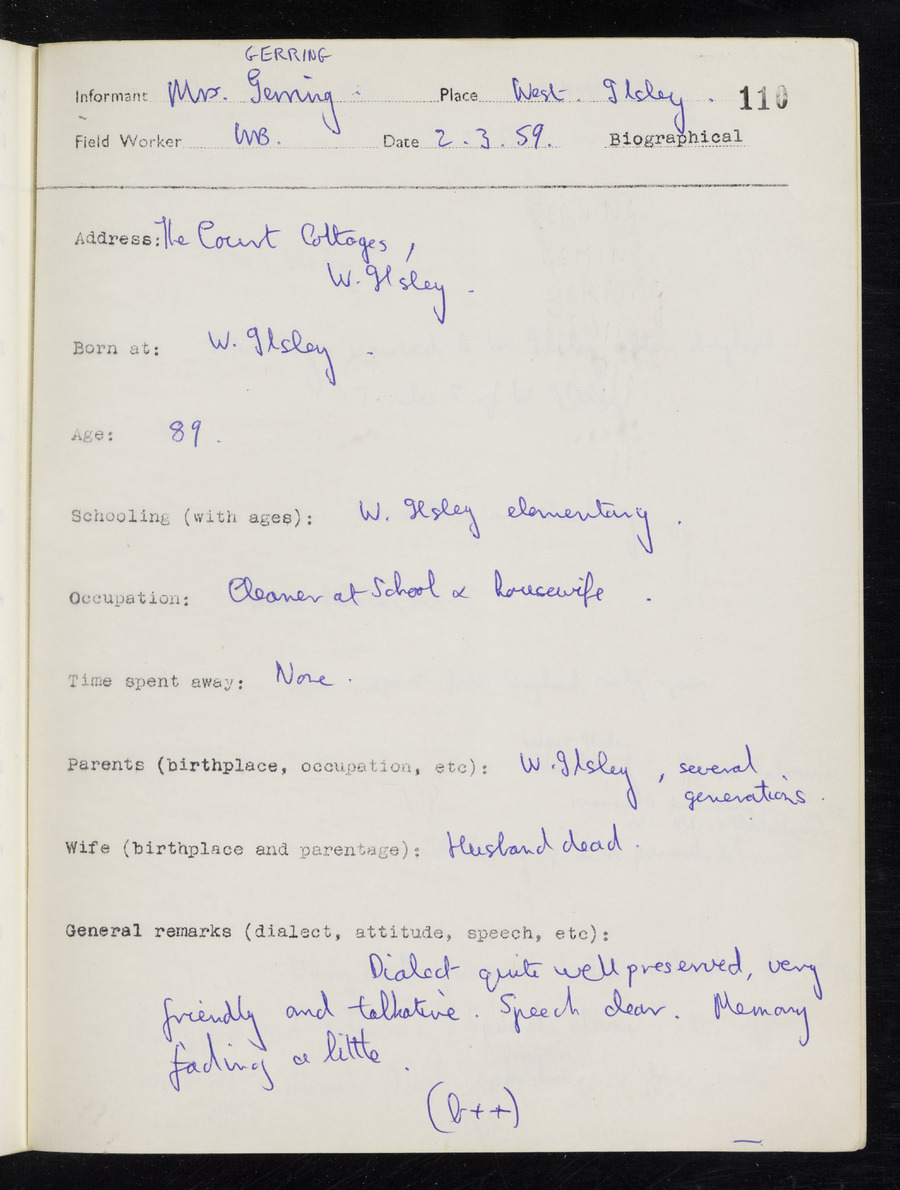 GERRING
Informant Mrs. Gerring. Place West. Ilsley. 110
Field Worker WB. Date 2.3.59. Biographical
Address: The Court Cottages,
W. Ilsley.
Born at: W. Ilsley.
Age: 89.
Schooling (with ages): W. Ilsley elementary.
Occupation: Cleaner at School & housewife.
Time spent away: None.
Parents (birthplace, occupation, etc): W. Ilsley, several
generations.
Wife (birthplace and parentage): Husband dead.
General remarks (dialect, attitude, speech, etc):
Dialect quite well preserved, very
friendly and talkative. Speech clear. Memory
fading a little.
(b++)